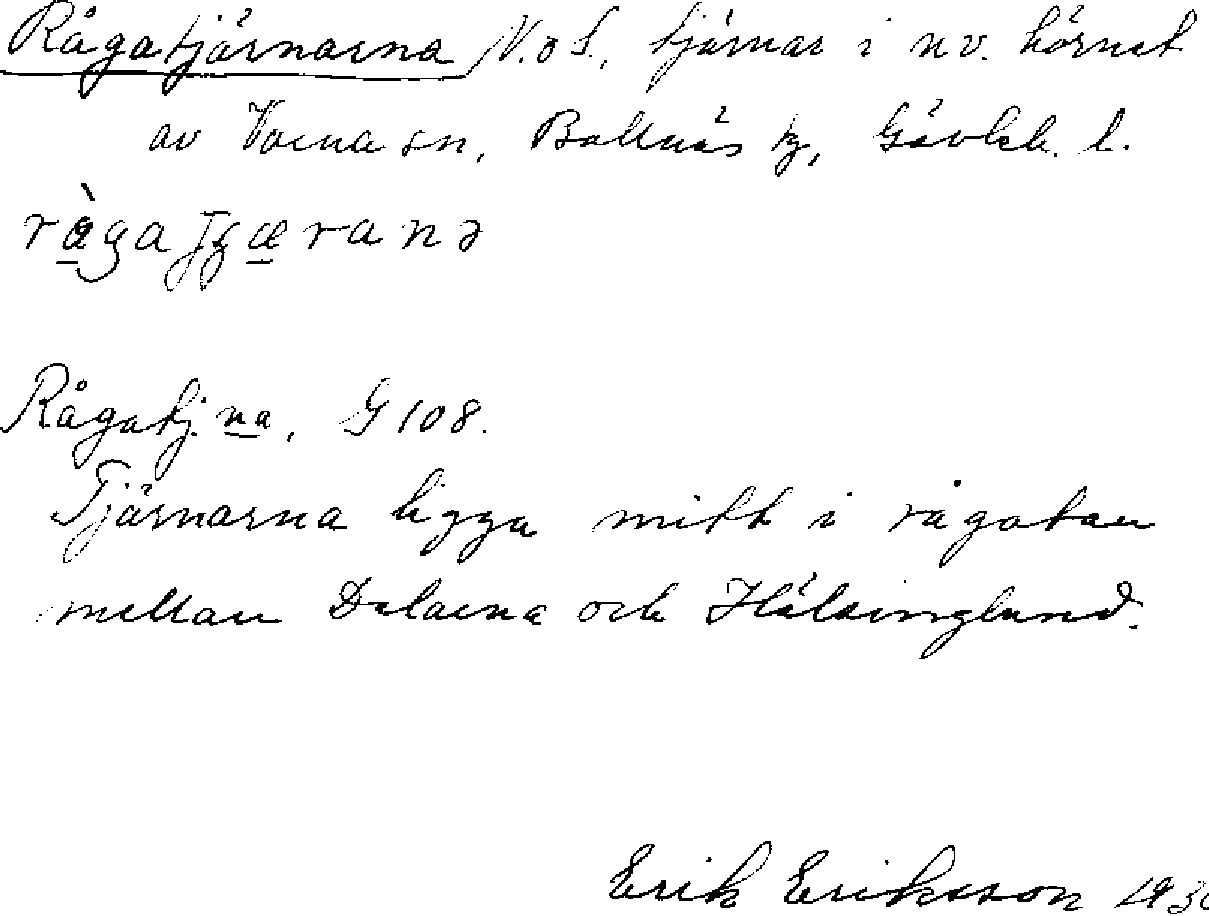 Rågatjärnarna N. o S., tjärnar i nv. hörnet
av Voxna sn, Bollnäs tg, Gävleb. l.
Rågatj.na, G 108.
Tjärnarna ligga mitt i rågatan
mellan Dalarna och Hälsingland.
Erik Eriksson